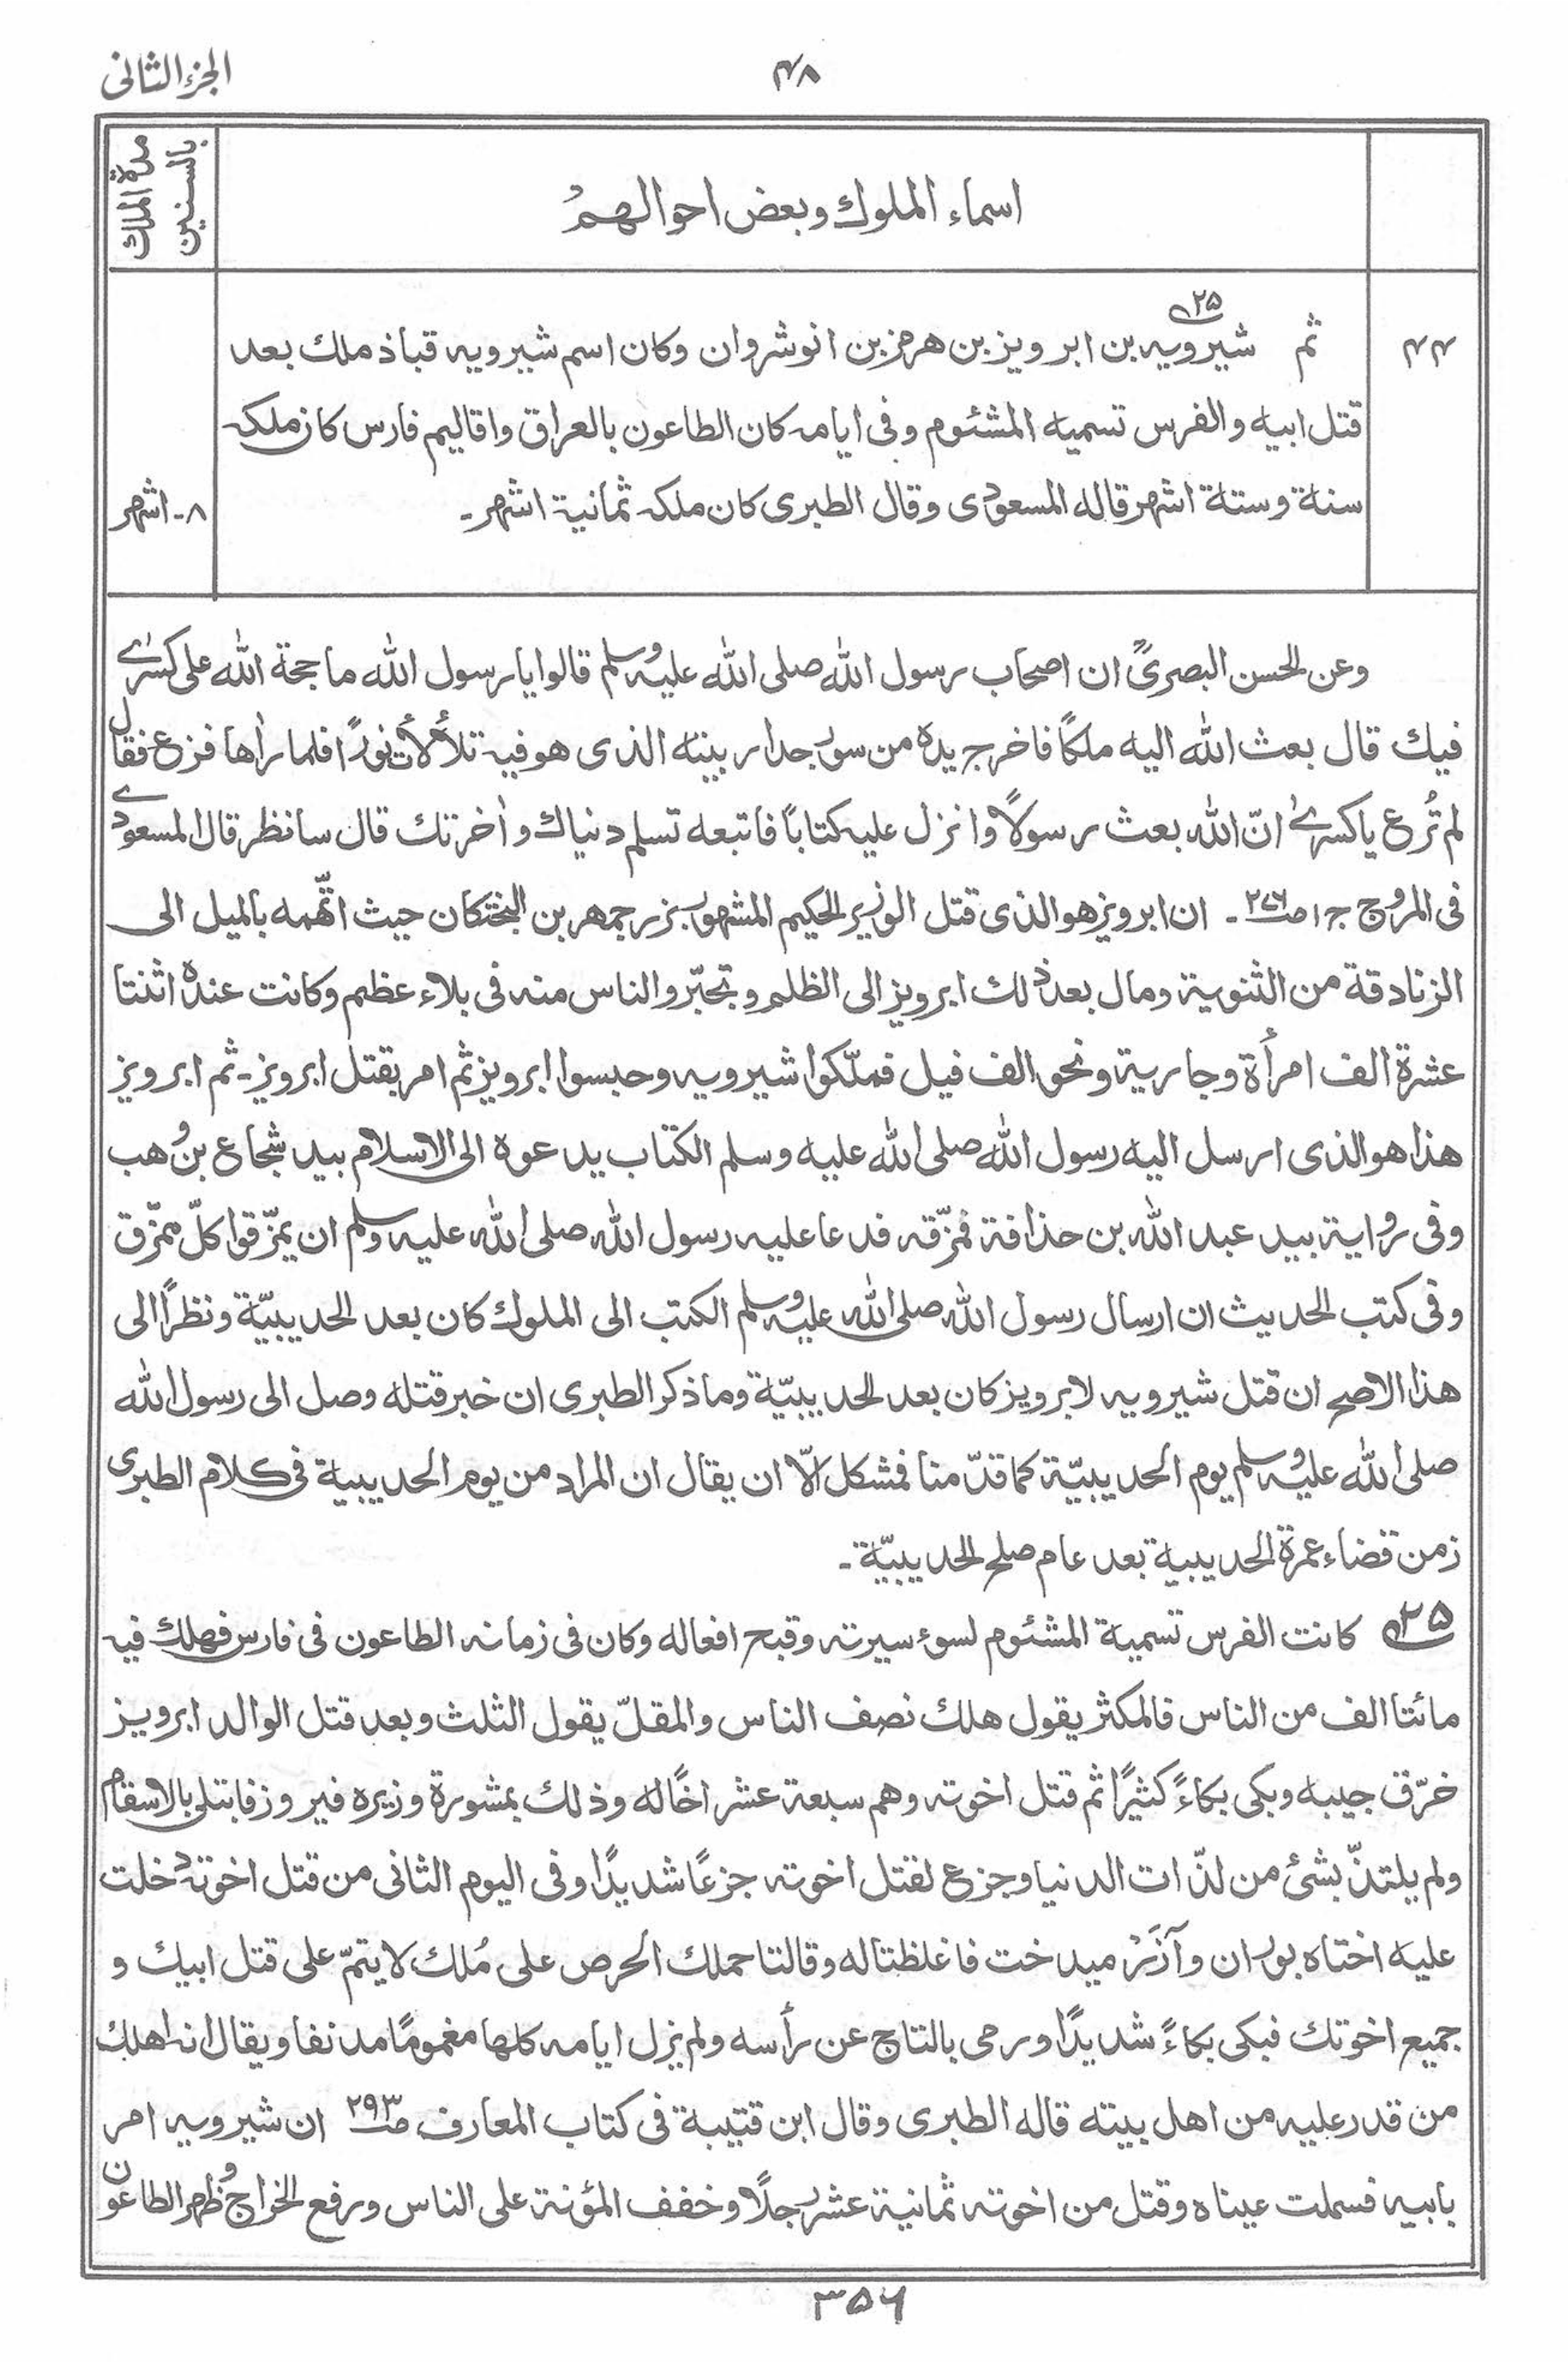 الجزء الثانی
۴۸
مدة الملك بالسنین
اسماء الملوك وبعض احوالهم
۴۴
ثم شیرویه بن ابرویز بن هرمز بن انوشروان وکان اسم شیرویه قباذ ملك بعد
۲۵
قتل ابیه والفرس تسمیه المشئوم وفی ایامه کان الطاعون بالعراق واقالیم فارس کان ملکه
سنة وستة اشهر قاله المسعودی وقال الطبری کان ملکه ثمانیة اشهر۔
۸۔ اشهر
وعن الحسن البصریؒ ان اصحاب رسول الله صلی الله علیه وسلم قالوا یا رسول الله ما حجة الله علی کسرٰی
فیك قال بعث الله الیه ملکًا فاخرج یده من سور جدار بیته الذی هو فیه تلألأت نورًا فلما رأها فزع فقال
لم تُرع یا کسرٰی انّ الله بعث رسولًا وانزل علیه کتابًا فاتبعه تسلم دنیاك وأخرتك قال سانظر قال المسعودی
فی المروج ج۱ ص۲۷۶۔ ان ابرویز هو الذی قتل الوزیر الحکیم المشهور بزرجمهر بن البختکان حیث اتّهمه بالمیل الی
الزنادقة من الثنویة ومال بعد ذلك ابرویز الی الظلم وتجبّر والناس منه فی بلاء عظیم وکانت عنده اثنتا
عشرة الف امرأة وجاریة ونحو الف فیل فملّکوا شیرویه وحبسوا ابرویز ثم امر بقتل ابرویز۔ ثم ابرویز
هذا هو الذی ارسل الیه رسول الله صلی الله علیه وسلم الکتاب یدعوه الی الاسلام بید شجاع بن وهب
وفی روایة بید عبد الله بن حذافة فمزّقه فدعا علیه رسول الله صلی الله علیه وسلم ان یمزّقوا کلّ ممزّق
وفی کتب الحدیث ان ارسال رسول الله صلی الله علیه وسلم الکتب الی الملوك کان بعد الحدیبیّة ونظرًا الی
هذا الاصح ان قتل شیرویه لابرویز کان بعد الحدیبیّة وما ذکر الطبری ان خبر قتله وصل الی رسول الله
صلی الله علیه وسلم یوم الحدیبیّة کما قدّمنا فمشکل الّا ان یقال ان المراد من یوم الحدیبیة فی کلام الطبری
زمن قضاء عمرة الحدیبیة بعد عام صلح الحدیبیّة۔
۲۵ کانت الفرس تسمیة المشئوم لسوء سیرته وقبح افعاله وکان فی زمانه الطاعون فی فارس فهلك فیه
مائتا الف من الناس فالمکثر یقول هلك نصف الناس والمقلّ یقول الثلث وبعد قتل الوالد ابرویز
خرّق جیبه وبکی بکاءً کثیرًا ثم قتل اخوته وهم سبعة عشر اخًا له وذلك بمشورة وزیره فیروز فابتلی بالاسقام
ولم یلتذّ بشئ من لذّات الدنیا وجزع لقتل اخوته جزعًا شدیدًا وفی الیوم الثانی من قتل اخوته دخلت
علیه اختاه بوران وآزر میدخت فاغلظتا له وقالتا حملك الحرص علی مُلك لا یتمّ علی قتل ابیك و
جمیع اخوتك فبکی بکاءً شدیدًا ورمی بالتاج عن رأسه ولم یزل ایامه کلها مغمومًا مدنفا ویقال انه اهلك
من قدر علیه من اهل بیته قاله الطبری وقال ابن قتیبة فی کتاب المعارف ص۲۹۳ ان شیرویه امر
بابیه فسملت عیناه وقتل من اخوته ثمانیة عشر رجلًا وخفف المؤنة علی الناس ورفع الخراج وظهر الطاعون
۳۵۶